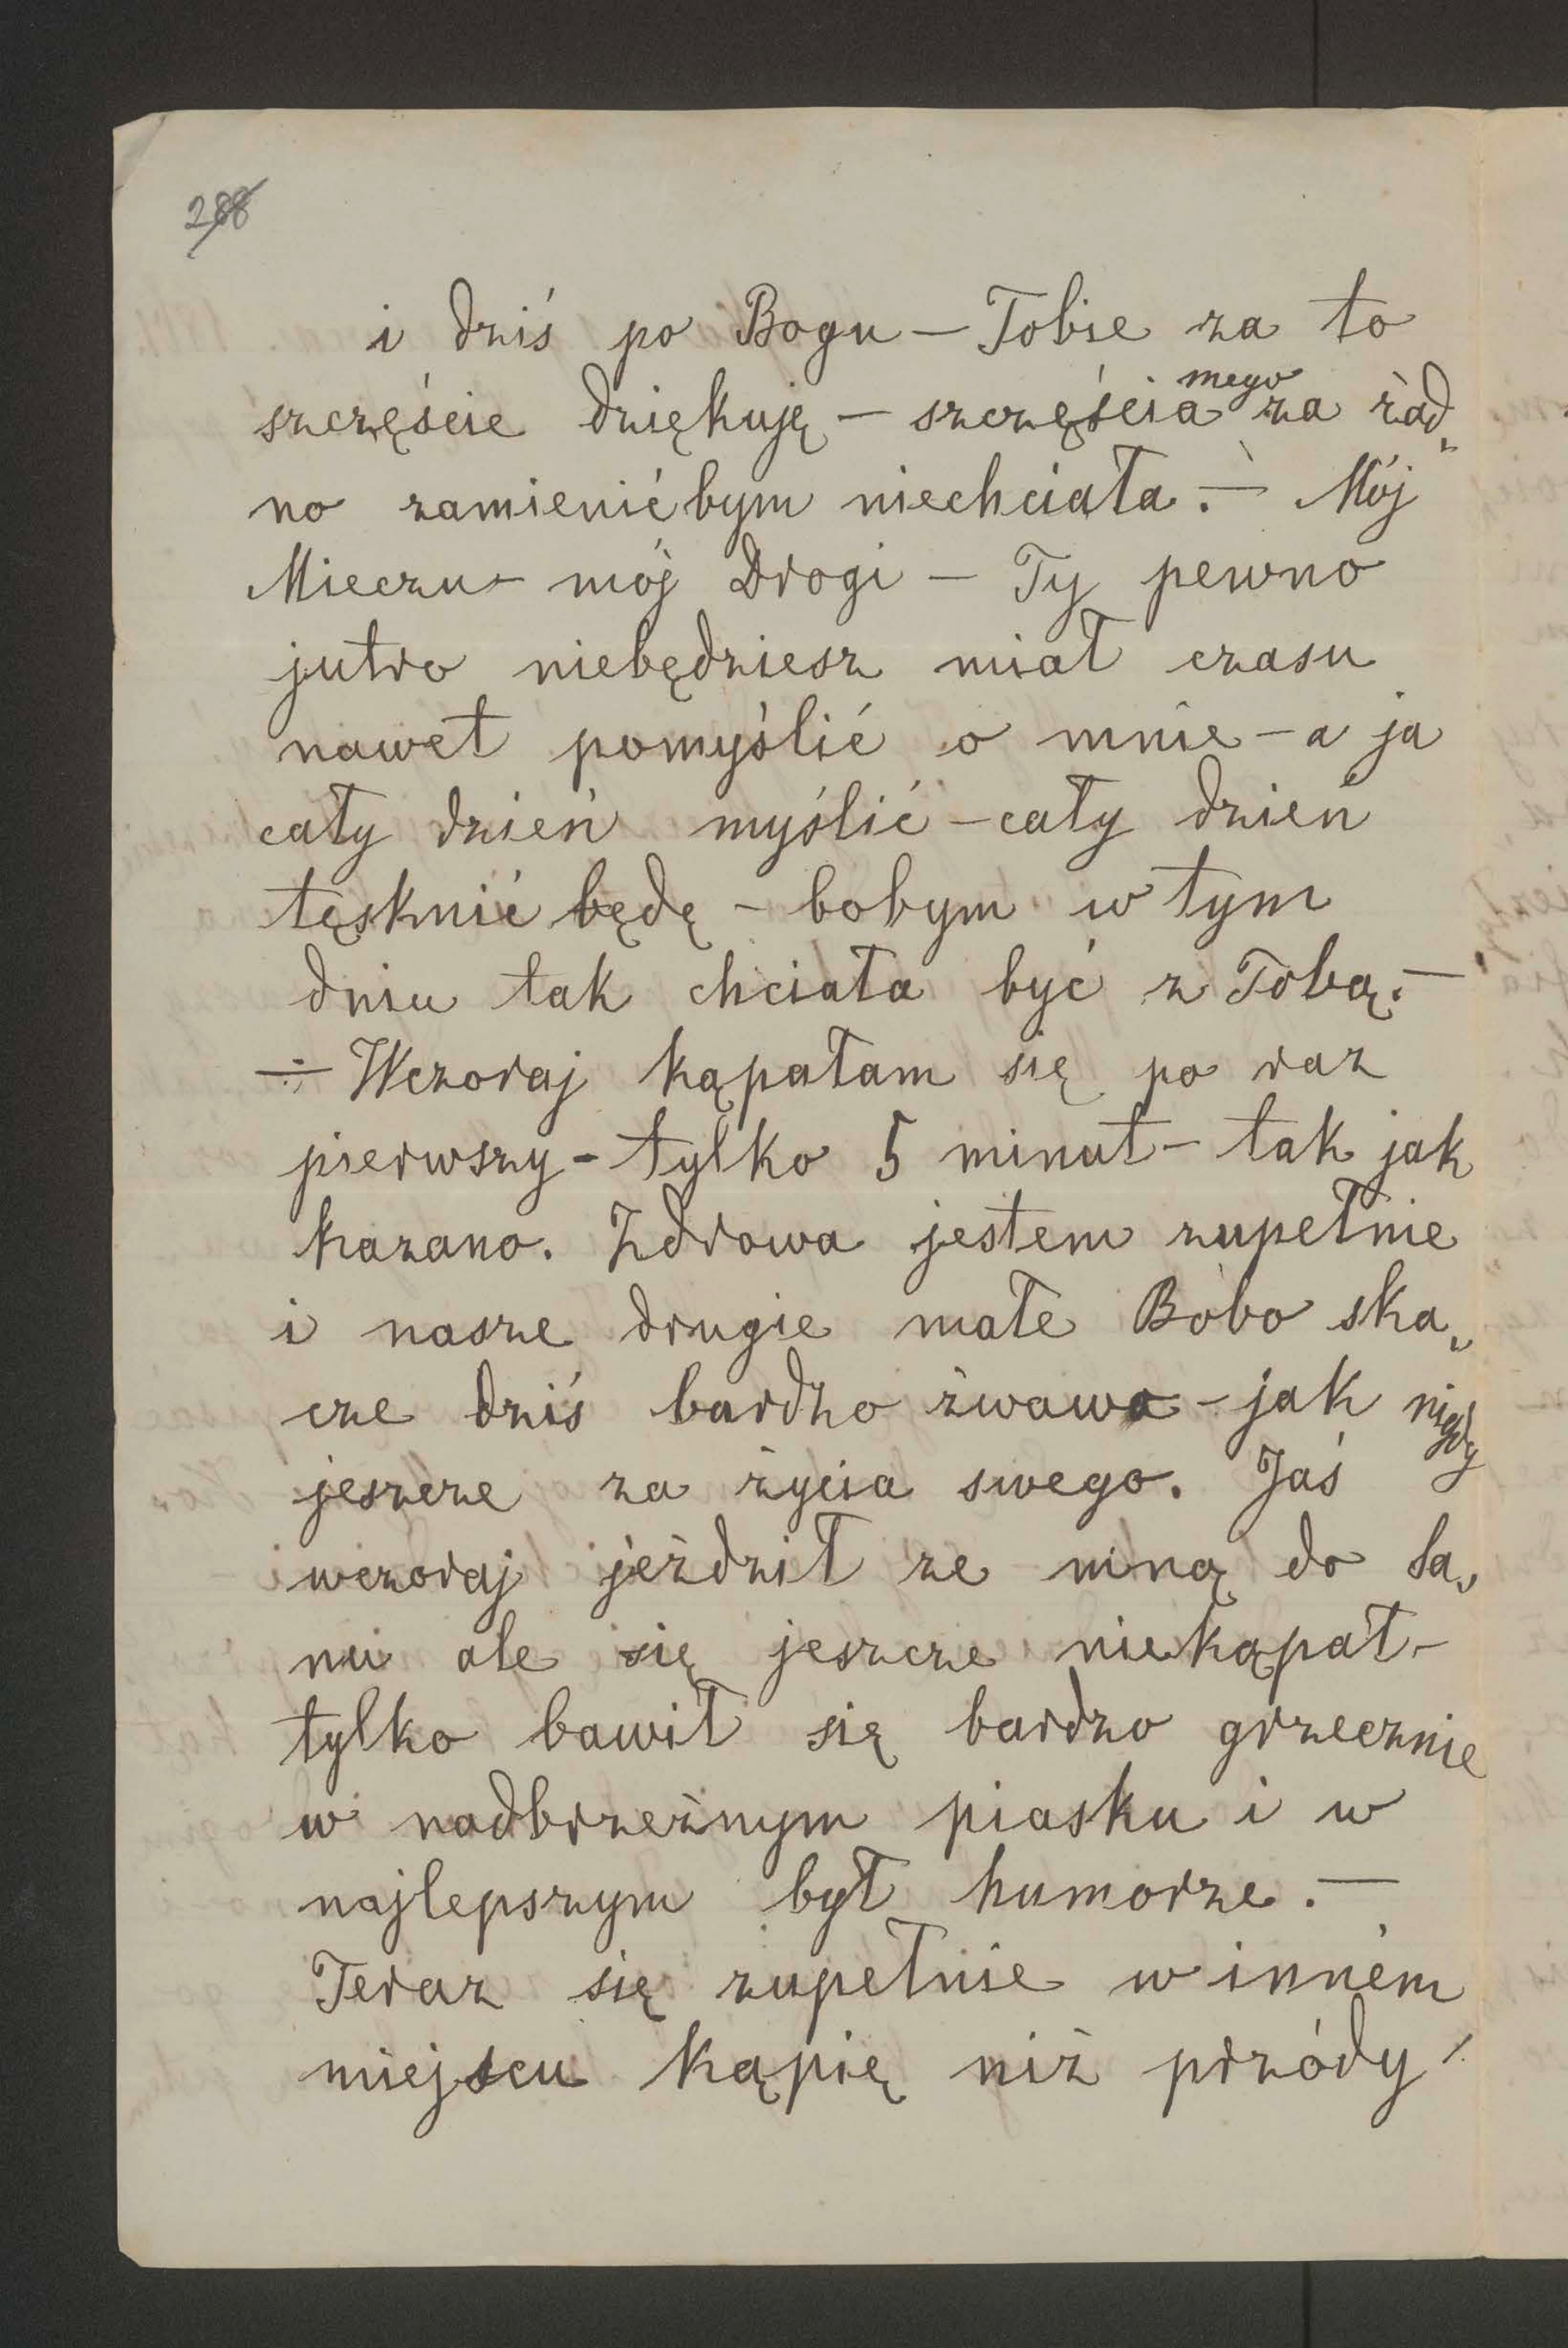 288
i dziś po Bogu — Tobie za to
szczęście dziękuję — szczęścia mego za żad„
no zamienićbym niechciała. — Mój
Mieczu — mój Drogi — Ty pewno
jutro niebędziesz miał czasu
nawet pomyślić o mnie — a ja
cały dzień myślić — cały dzień
tęsknić będę — bobym w tym
dniu tak chciała być z Tobą. —
— Wczoraj kąpałam się po raz
pierwszy — tylko 5 minut — tak jak
kazano. Zdrowa jestem zupełnie
i nasze drugie małe Bóbo ska„
cze dziś bardzo żwawo — jak nigdy
jeszcze za życia swego. Jaś
wczoraj jeździł ze mną do Sa„
nu ale się jeszcze niekąpał —
tylko bawił się bardzo grzecznie
w nadbrzeżnym piasku i w
najlepszym był humorze. —
Teraz się zupełnie w inném
miejscu kąpię niż przódy